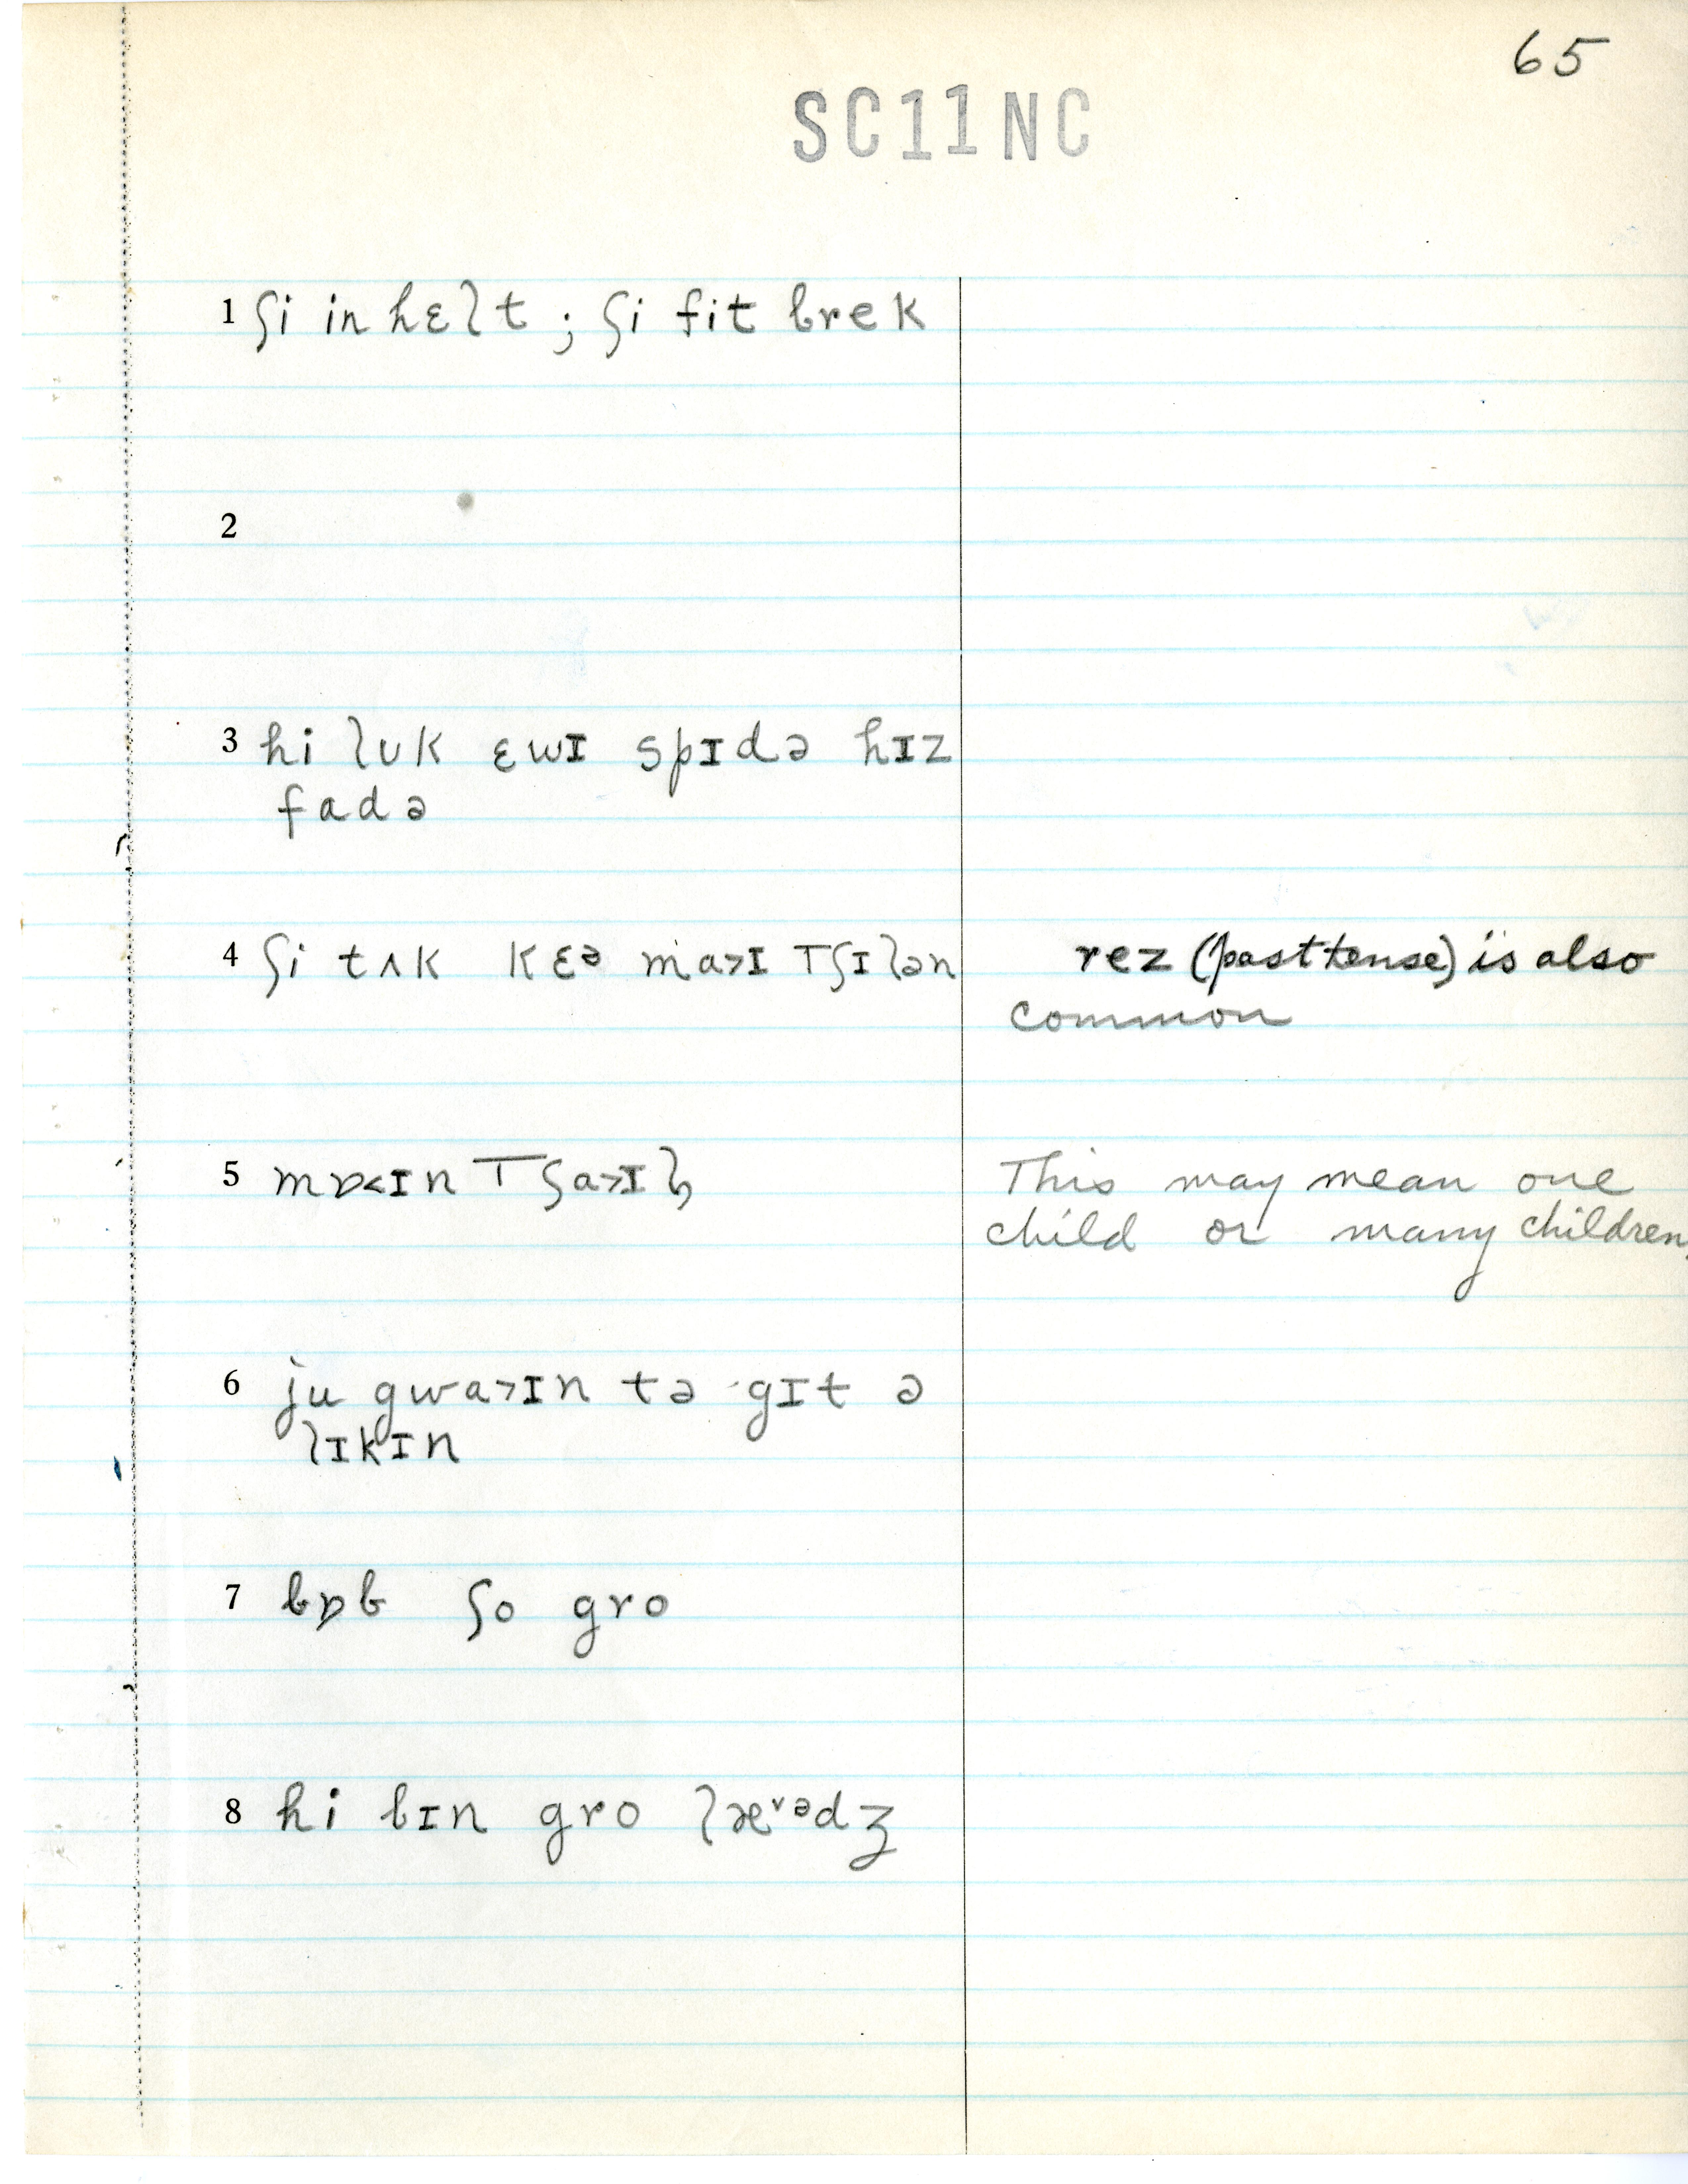 65
SC11NC
1 ʃi in hɛlt ; ʃi fit brek
2
3 hi lʊk ɛwɪ spɪdə hɪz
fadə
4 ʃi tʌk kɛə ma˃ɪ tʃɪlən rez (past tense) is also
common
5 mɒ˂ɪn tʃa˃ɪl̥ This may mean one
child or many children.
6 ju gwa˃ɪn tə gɪt ə
lɪkɪn
7 bɒb ʃo gro
8 hi bɪn gro læ˅ədʒ